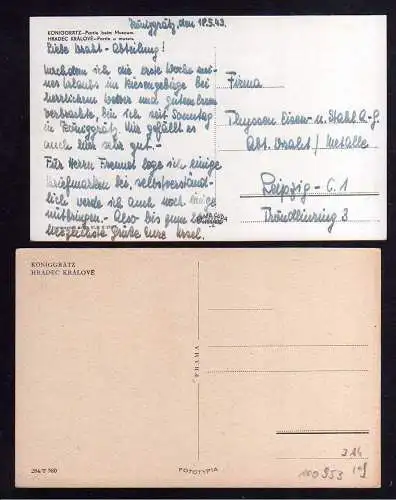 Königgrätz, den 18.5.43.
KÖNIGGRÄTZ—Partie beim Museum.
HRADEC KRÁLOVÉ—Partie u musea.
Liebe Draht-Abteilung!
Nachdem ich die erste Woche mei-
nes Urlaubs im Riesengebirge bei
herrlichem Wetter und gutem Essen
verbrachte, bin ich seit Sonntag
in Königgrätz. Mir gefällt es
auch hier sehr gut.
Für Herrn Freund lege ich einige
Briefmarken bei, selbstverständ-
lich werde ich auch noch einige
mitbringen. Also bis zum
herzlichste Grüße Eure
Firma
Thyssen Eisen- u. Stahl A.-G.
Abt. Draht / Metalle
Leipzig - C. 1
Tröndlinring 3
KÖNIGGRÄTZ
HRADEC KRÁLOVÉ
PRAHA
FOTOTYPIA
100953